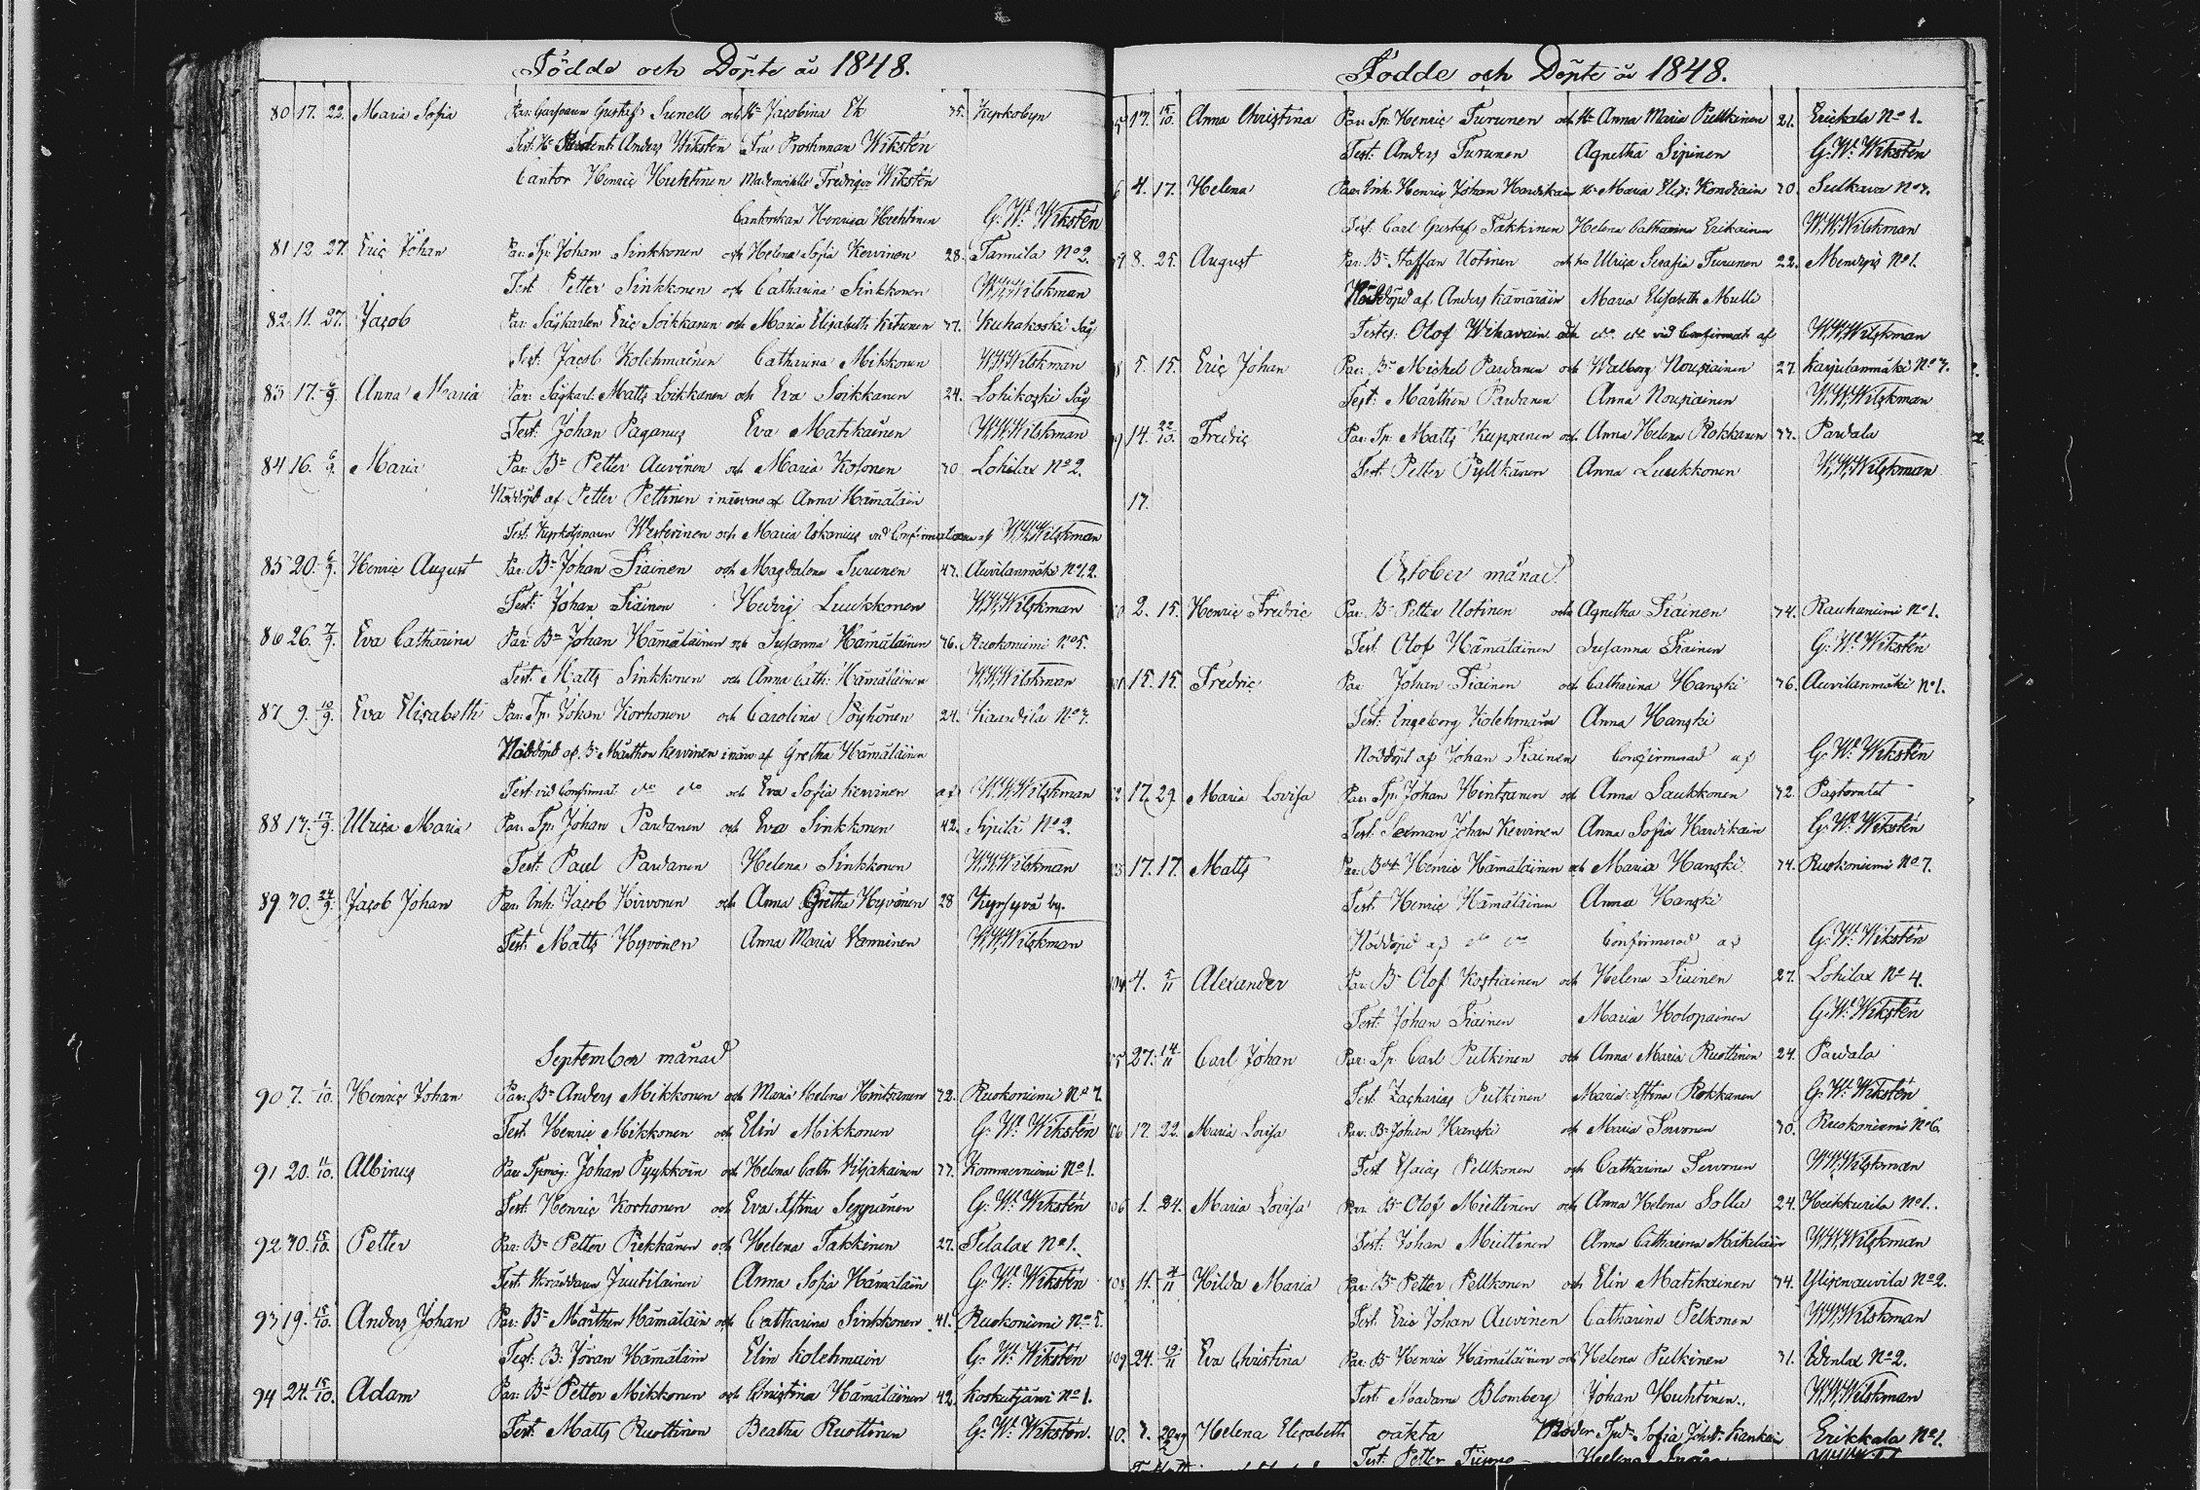 Födde och Döpte år 1848.
80 17. 22. Maria Sofia Par: Gustaf Sunell och Hu Jacobina Ek 35. Kyrkobyn
Test: Hr Student Anders Wikstén Fru Prostinnan Wikstén
Cantor Henric Huhtinen Mademoiselle Fredrica Wikstén
Cantorskan Henrica Huhtinen G: Wm: Wikstén
81 12. 27. Eric Johan Par: Tp: Johan Sinkkonen och Helena Sofia Kervinen 28. Tannila No 2.
Test Petter Sinkkonen och Catharina Sinkkonen W.W.Wilskman
82 11. 27. Jacob Par: Sågkarlen Eric Loikkanen och Maria Elisabeth Kitunen 37. Kuhakoski Såg
Test. Jacob Kolehmainen Catharina Mikkonen W.W.Wilskman
83 17. 6/9. Anna Maria Par: Sågkarl: Matts Loikkanen och Eva Loikkanen 24. Lohikoski Såg
Test: Johan Paganus Eva Matikainen W.W.Wilskman
84 16. 6/9. Maria Par: Bn Petter Auvinen och Maria Kolonen 30. Lohilax No 2.
Nöddöpt af Petter Pettinen i närvaro af Anna Hämäläin
Test. Kyrkotjenaren Westerinen och Maria Ukanius vid Confirmationen af W.W.Wilskman
85 20. 6/9. Henric August Par: Bn Johan Tiainen och Magdalena Turunen 43. Auvilanmäki No 1,2.
Test: Johan Tiainen Hedvig Luukkonen W.W.Wilskman
86 26. 7/9. Eva Catharina Par: Bn Johan Hämäläinen och Susanna Hämäläinen 36. Ruokoniemi No 5.
Test: Matts Sinkkonen och Anna Cath: Hämäläinen W.W.Wilskman
87 9. 10/9. Eva Elisabeth Par: Tp: Johan Korhonen och Carolina Pöyhönen 24. Kaartila No 3.
Nöddöpt af Bn Mårthen Kervinen i närv af Gretha Hämäläinen
Test vid Confirmat. do do och Eva Sofia Kervinen af W.W.Wilskman
88 13. 17/9. Ulrica Maria Par: Tp: Johan Pardanen och Eva Sinkkonen 42. Sipilä No 2.
Test: Paul Pardanen Helena Sinkkonen W.W.Wilskman
89 30. 24/9. Jacob Johan Par: Inh: Jacob Hirvonen och Anna Gretha Hyvönen 28 Kyrsyvä by.
Test: Matts Hyvönen Anna Maria Vanninen W.W.Wilskman
September månad
90 7. 1/10. Henric Johan Par: Bn Anders Mikkonen och Maria Helena Hintsanen 32. Ruokoniemi No 7.
Test Henric Mikkonen och Elin Mikkonen G: Wm: Wikstén
91 20. 11/10. Albinus Par: Johan Pyykköin och Helena Cath: Viljakainen 33. Kommerniemi No 1.
Test: Henric Korhonen och Eva Stina Seppänen G: Wm: Wikstén
92 30. 15/10. Petter Par: Bn Petter Piekkänen och Helena Takkinen 27. Telalax No 1.
Test: Skräddaren Juutilainen Anna Sofia Hämäläin G: Wm: Wikstén
93 19. 15/10. Anders Johan Par: Bn Mårthen Hämäläin och Catharina Sinkkonen 41. Ruokoniemi No 5.
Test: B: Jöran Hämäläin Elin Kolehmain G: Wm: Wikstén
94 24. 15/10. Adam Par: Bn Petter Mikkonen och Christina Hämäläinen 42. Koskutjärvi No 1.
Test: Matts Ruottinen Beatha Ruottinen G: Wm: Wikstén.
Födde och Döpte år 1848.
5 17. 15/10. Anna Christina Par: Tp: Henric Turunen och Hu Anna Maria Pulkkinen 21. Erickala No 1.
Test: Anders Turunen Agnetha Sipinen G: Wm: Wikstén
6 4. 17. Helena Par: Inh: Henric Johan Hardikain Hu Maria Elis: Kondiain 30. Sulkava No 7.
Test. Carl Gustaf Takkinen Helena Catharina Erikainen W.W.Wilskman
8. 25. August Par: Bn Staffan Uotinen och hu Ulrica Serafia Turunen 22. No 1.
Nöddöpt af Anders Kämäräin Maria Elisabeth Mulli
Testes: Olof Wihavain och do do vid Confirmat af W.W.Wilskman
8 5. 15. Eric Johan Par: Bn Michel Pardanen och Walborg Nousiainen 27. Karjulanmäki No 7.
Test: Mårthen Pardanen Anna Nousiainen W.W.Wilskman
9 14. 22/10. Fredric Par: Tp: Matts Kupiainen och Anna Helena Rokkanen 33. Pardala
Test Petter Pylkkänen Anna Luukkonen W.W.Wilskman
17.
October månad.
0 2. 15. Henric Fredric Par: Bn Petter Uotinen och Agnetha Tiainen 34. Rauhaniemi No 1.
Test. Olof Hämäläinen Susanna Tiainen G: Wm: Wikstén
01 15. 15. Fredric Par Johan Tiainen och Catharina Hanski 36. Auvilanmäki No 1.
Test: Ingeborg Kolehmain Anna Hanski
Nöddöpt af Johan Tiainen Confirmerad af G: Wm: Wikstén
2 17. 29. Maria Lovisa Par: Tp: Johan Hintsanen och Anna Laukkonen 32. Pastoratet
Test. Johan Kervinen Anna Sofia Hardikain G: Wm: Wikstén
03 17. 17. Matts Par: Henric Hämäläinen och Maria Hanski 34. Ruokoniemi No 7.
Test: Henric Hämäläinen Anna Hanski
Nöddöpt af do do Confirmerad af G: Wm: Wikstén
104. 4. 5/11 Alexander Par: Bn Olof Kostiainen och Helena Tiainen 27. Lohilax No 4.
Test: Johan Tiainen Maria Holopainen G: Wm: Wikstén
05 27. 14/11 Carl Johan Par: Tp: Carl Pulkinen och Anna Maria Ruottinen 24. Pardala
Test. Zacharias Pulkinen Maria Stina Rokkanen G: Wm: Wikstén
06 17. 22. Maria Lovisa Par: Bn Johan Hanski och Maria Torvonen 30. Ruokoniemi No 6.
Test Esaias Pellkonen och Catharina Tervonen W.W.Wilskman
06 1. 24. Maria Lovisa Par: Bn Olof Miettinen och Anna Helena Lolla 24. Heikkurila No 1.
Test: Johan Miettinen Anna Catharina Mäkeläin W.W.Wilskman
108 11. 4/11 Hilda Maria Par: Bn Petter Pellkonen och Elin Matikainen 34. Ylisenauvila No 2.
Test: Eric Johan Auvinen Catharina Pelkonen W.W.Wilskman
109 24. 12/11 Eva Christina Par: Bn Henric Hämäläinen och Helena Pulkinen 31. No 2.
Test Madame Blomberg Johan Huhtinen. W.W.Wilskman
10. Helena Elisabeth oäkta Moder Sofia Erikkala No 1.
Test: Petter